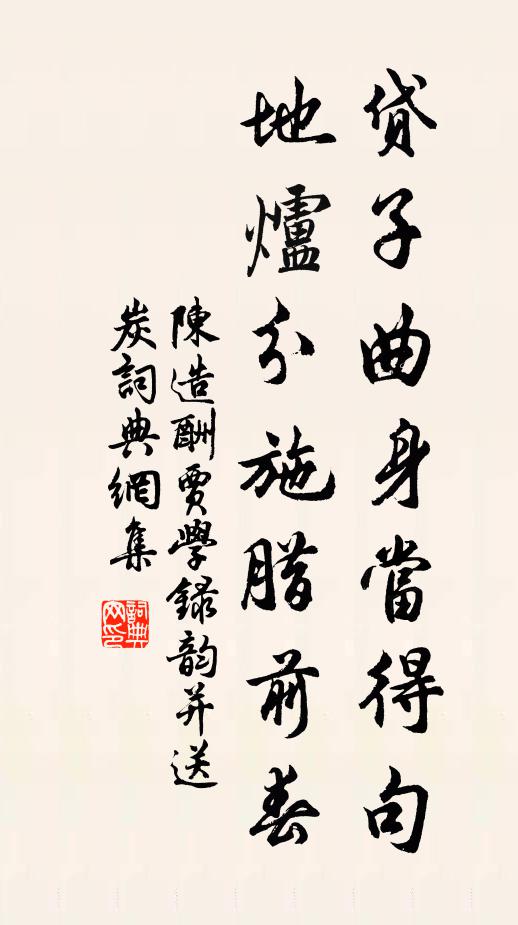 貸子曲身當得句
地爐分施腊前春
陳造酬賈學録韵并送
炭詞典網集
詞典网印